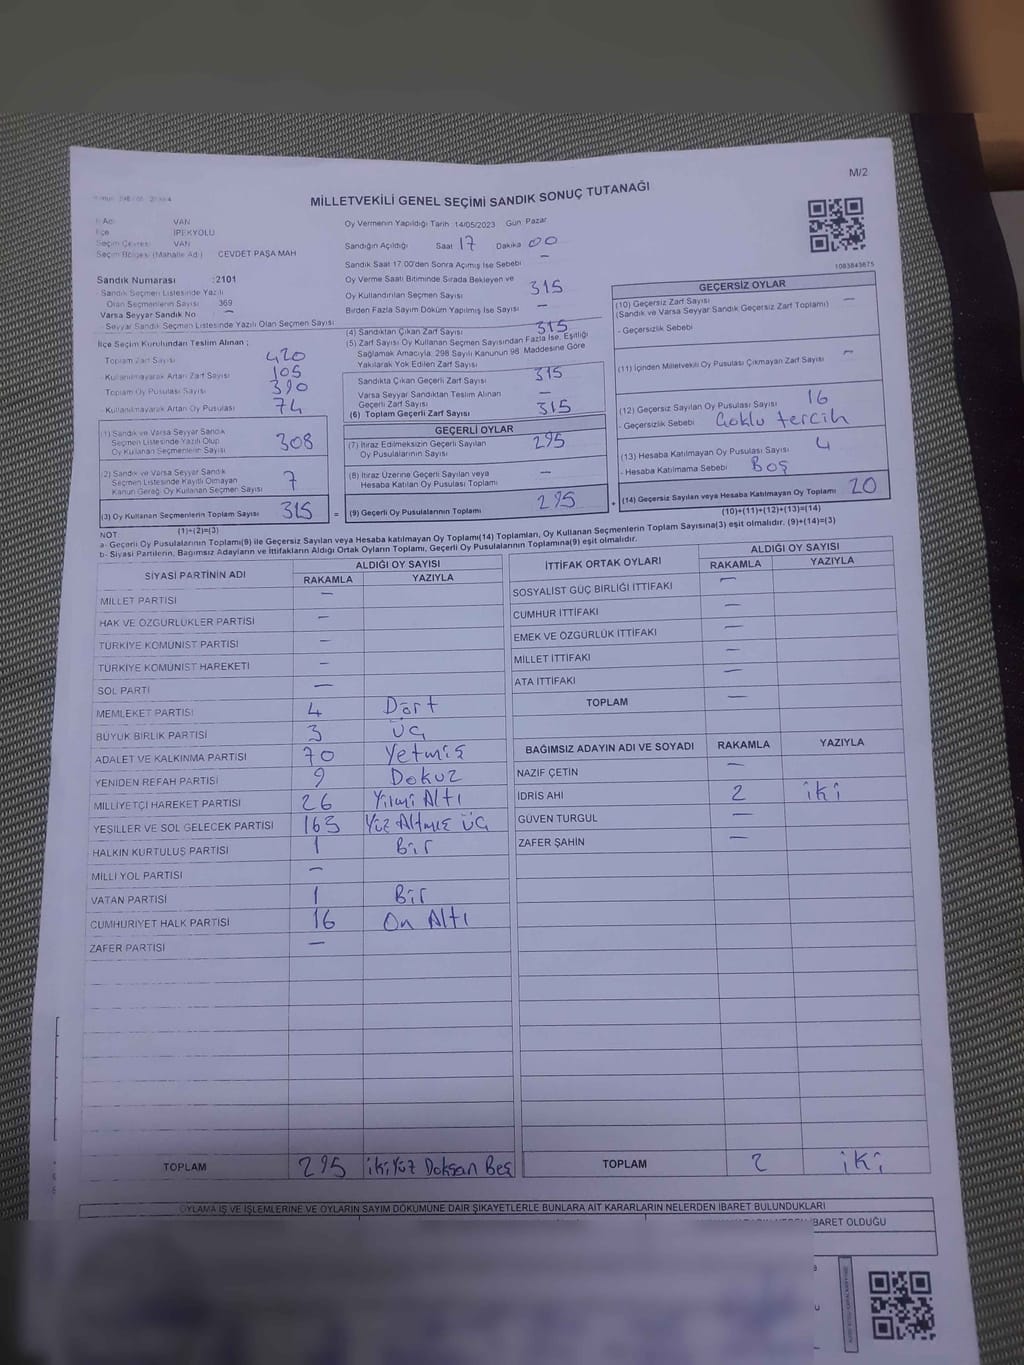 M/2
MİLLETVEKİLİ GENEL SEÇİMİ SANDIK SONUÇ TUTANAĞI
VAN
İPEKYOLU
Seçim Çevresi VAN
Seçim Bölgesi (Mahalle Adı) CEVDET PAŞA MAH
Sandık Numarası :2101
Sandık Seçmen Listesinde Yazılı
Olan Seçmenlerin Sayısı 369
Varsa Seyyar Sandık No —
- Seyyar Sandık Seçmen Listesinde Yazılı Olan Seçmen Sayısı
İlçe Seçim Kurulundan Teslim Alınan ;
Toplam Zarf Sayısı 420
- Kullanılmayarak Artan Zarf Sayısı 105
Toplam Oy Pusulası Sayısı 390
- Kullanılmayarak Artan Oy Pusulası 74
(1) Sandık ve Varsa Seyyar Sandık
Seçmen Listesinde Yazılı Olup
Oy Kullanan Seçmenlerin Sayısı 308
(2) Sandık ve Varsa Seyyar Sandık
Seçmen Listesinde Kayıtlı Olmayan
Kanun Gereği Oy Kullanan Seçmen Sayısı 7
(3) Oy Kullanan Seçmenlerin Toplam Sayısı 315 =
(1)+(2)=(3)
Oy Vermenin Yapıldığı Tarih 14/05/2023 Gün Pazar
Sandığın Açıldığı Saat 17 Dakika 00
Sandık Saat 17:00'den Sonra Açılmış İse Sebebi —
Oy Verme Saati Bitiminde Sırada Bekleyen ve
Oy Kullandırılan Seçmen Sayısı 315
Birden Fazla Sayım Döküm Yapılmış İse Sayısı —
(4) Sandıktan Çıkan Zarf Sayısı 315
(5) Zarf Sayısı Oy Kullanan Seçmen Sayısından Fazla İse, Eşitliği
Sağlamak Amacıyla, 298 Sayılı Kanunun 98. Maddesine Göre
Yakılarak Yok Edilen Zarf Sayısı
Sandıkta Çıkan Geçerli Zarf Sayısı 315
Varsa Seyyar Sandıktan Teslim Alınan
Geçerli Zarf Sayısı —
(6) Toplam Geçerli Zarf Sayısı 315
GEÇERLİ OYLAR
(7) İtiraz Edilmeksizin Geçerli Sayılan
Oy Pusulalarının Sayısı 295
(8) İtiraz Üzerine Geçerli Sayılan veya
Hesaba Katılan Oy Pusulası Toplamı —
(9) Geçerli Oy Pusulalarının Toplamı 295 +
1083843675
GEÇERSİZ OYLAR
(10) Geçersiz Zarf Sayısı —
(Sandık ve Varsa Seyyar Sandık Geçersiz Zarf Toplamı)
- Geçersizlik Sebebi
(11) İçinden Milletvekili Oy Pusulası Çıkmayan Zarf Sayısı —
(12) Geçersiz Sayılan Oy Pusulası Sayısı 16
- Geçersizlik Sebebi Çoklu tercih
(13) Hesaba Katılmayan Oy Pusulası Sayısı 4
- Hesaba Katılmama Sebebi Boş
(14) Geçersiz Sayılan veya Hesaba Katılmayan Oy Toplamı 20
(10)+(11)+(12)+(13)=(14)
NOT:
a- Geçerli Oy Pusulalarının Toplamı(9) ile Geçersiz Sayılan veya Hesaba katılmayan Oy Toplamı(14) Toplamları, Oy Kullanan Seçmenlerin Toplam Sayısına(3) eşit olmalıdır. (9)+(14)=(3)
b- Siyasi Partilerin, Bağımsız Adayların ve İttifakların Aldığı Ortak Oyların Toplamı, Geçerli Oy Pusulalarının Toplamına(9) eşit olmalıdır.
SİYASİ PARTİNİN ADI ALDIĞI OY SAYISI
RAKAMLA YAZIYLA
MİLLET PARTİSİ —
HAK VE ÖZGÜRLÜKLER PARTİSİ —
TÜRKİYE KOMÜNİST PARTİSİ —
TÜRKİYE KOMÜNİST HAREKETİ —
SOL PARTİ —
MEMLEKET PARTİSİ 4 Dört
BÜYÜK BİRLİK PARTİSİ 3 Üç
ADALET VE KALKINMA PARTİSİ 70 Yetmiş
YENİDEN REFAH PARTİSİ 9 Dokuz
MİLLİYETÇİ HAREKET PARTİSİ 26 Yirmi Altı
YEŞİLLER VE SOL GELECEK PARTİSİ 163 Yüz Altmış Üç
HALKIN KURTULUŞ PARTİSİ 1 Bir
MİLLİ YOL PARTİSİ —
VATAN PARTİSİ 1 Bir
CUMHURİYET HALK PARTİSİ 16 On Altı
ZAFER PARTİSİ —
TOPLAM 295 İki Yüz Doksan Beş
İTTİFAK ORTAK OYLARI ALDIĞI OY SAYISI
RAKAMLA YAZIYLA
SOSYALİST GÜÇ BİRLİĞİ İTTİFAKI —
CUMHUR İTTİFAKI —
EMEK VE ÖZGÜRLÜK İTTİFAKI —
MİLLET İTTİFAKI —
ATA İTTİFAKI —
TOPLAM —
BAĞIMSIZ ADAYIN ADI VE SOYADI RAKAMLA YAZIYLA
NAZİF ÇETİN —
İDRİS AHİ 2 İKİ
GÜVEN TURGUL —
ZAFER ŞAHİN —
TOPLAM 2 İKİ
OYLAMA İŞ VE İŞLEMLERİNE VE OYLARIN SAYIM DÖKÜMÜNE DAİR ŞİKAYETLERLE BUNLARA AİT KARARLARIN NELERDEN İBARET BULUNDUKLARI
İBARET OLDUĞU